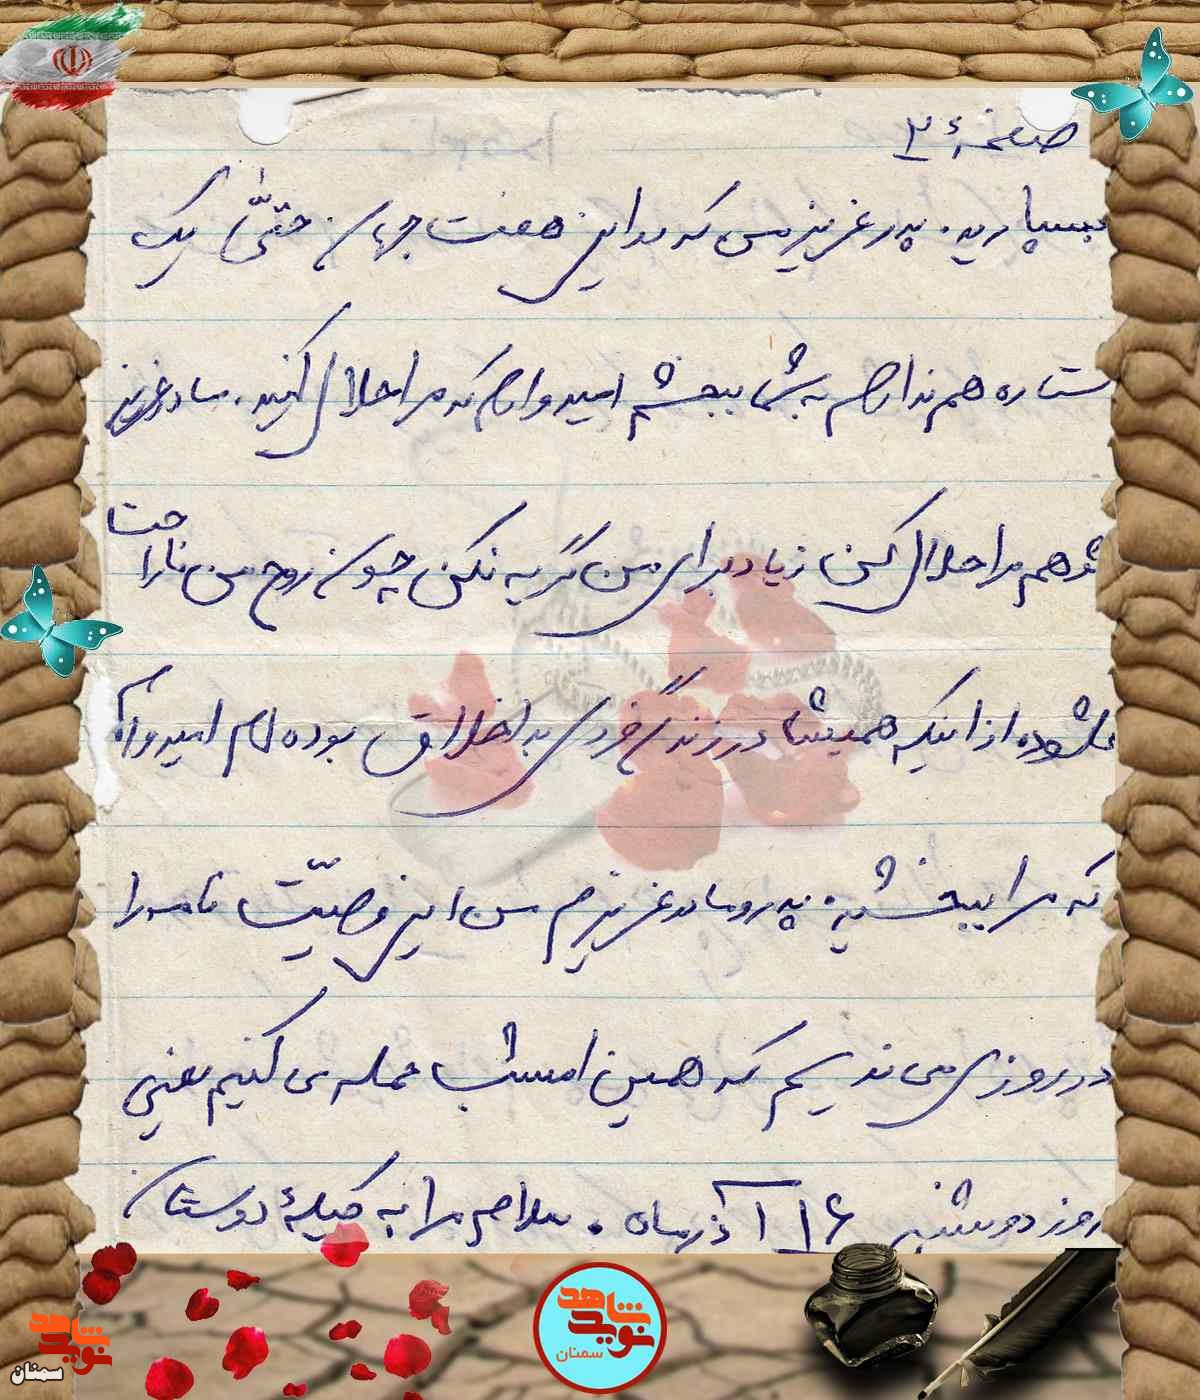 صفحهٔ ۳
بسپارید. پدر عزیزم من که در این هفت جهان حتّی یک
ستاره هم ندارم به شما ببخشم امیدوارم که مرا حلال کنید. مادر عزیز
تو هم مرا حلال کن زیاد برای من گریه نکن چون روح من ناراحت
می‌شود از اینکه همیشه در زندگی فردی بد اخلاق بوده‌ام امیدوارم
که مرا ببخشید. پدر و مادر عزیزم من این وصیّت نامه را
در روزی می‌نویسم که همین امشب حمله می‌کنیم یعنی
روز دوشنبه ۱۶ آذرماه. سلام مرا به کلیهٔ دوستان
نوید شاهد
سمنان
نوید شاهد
سمنان